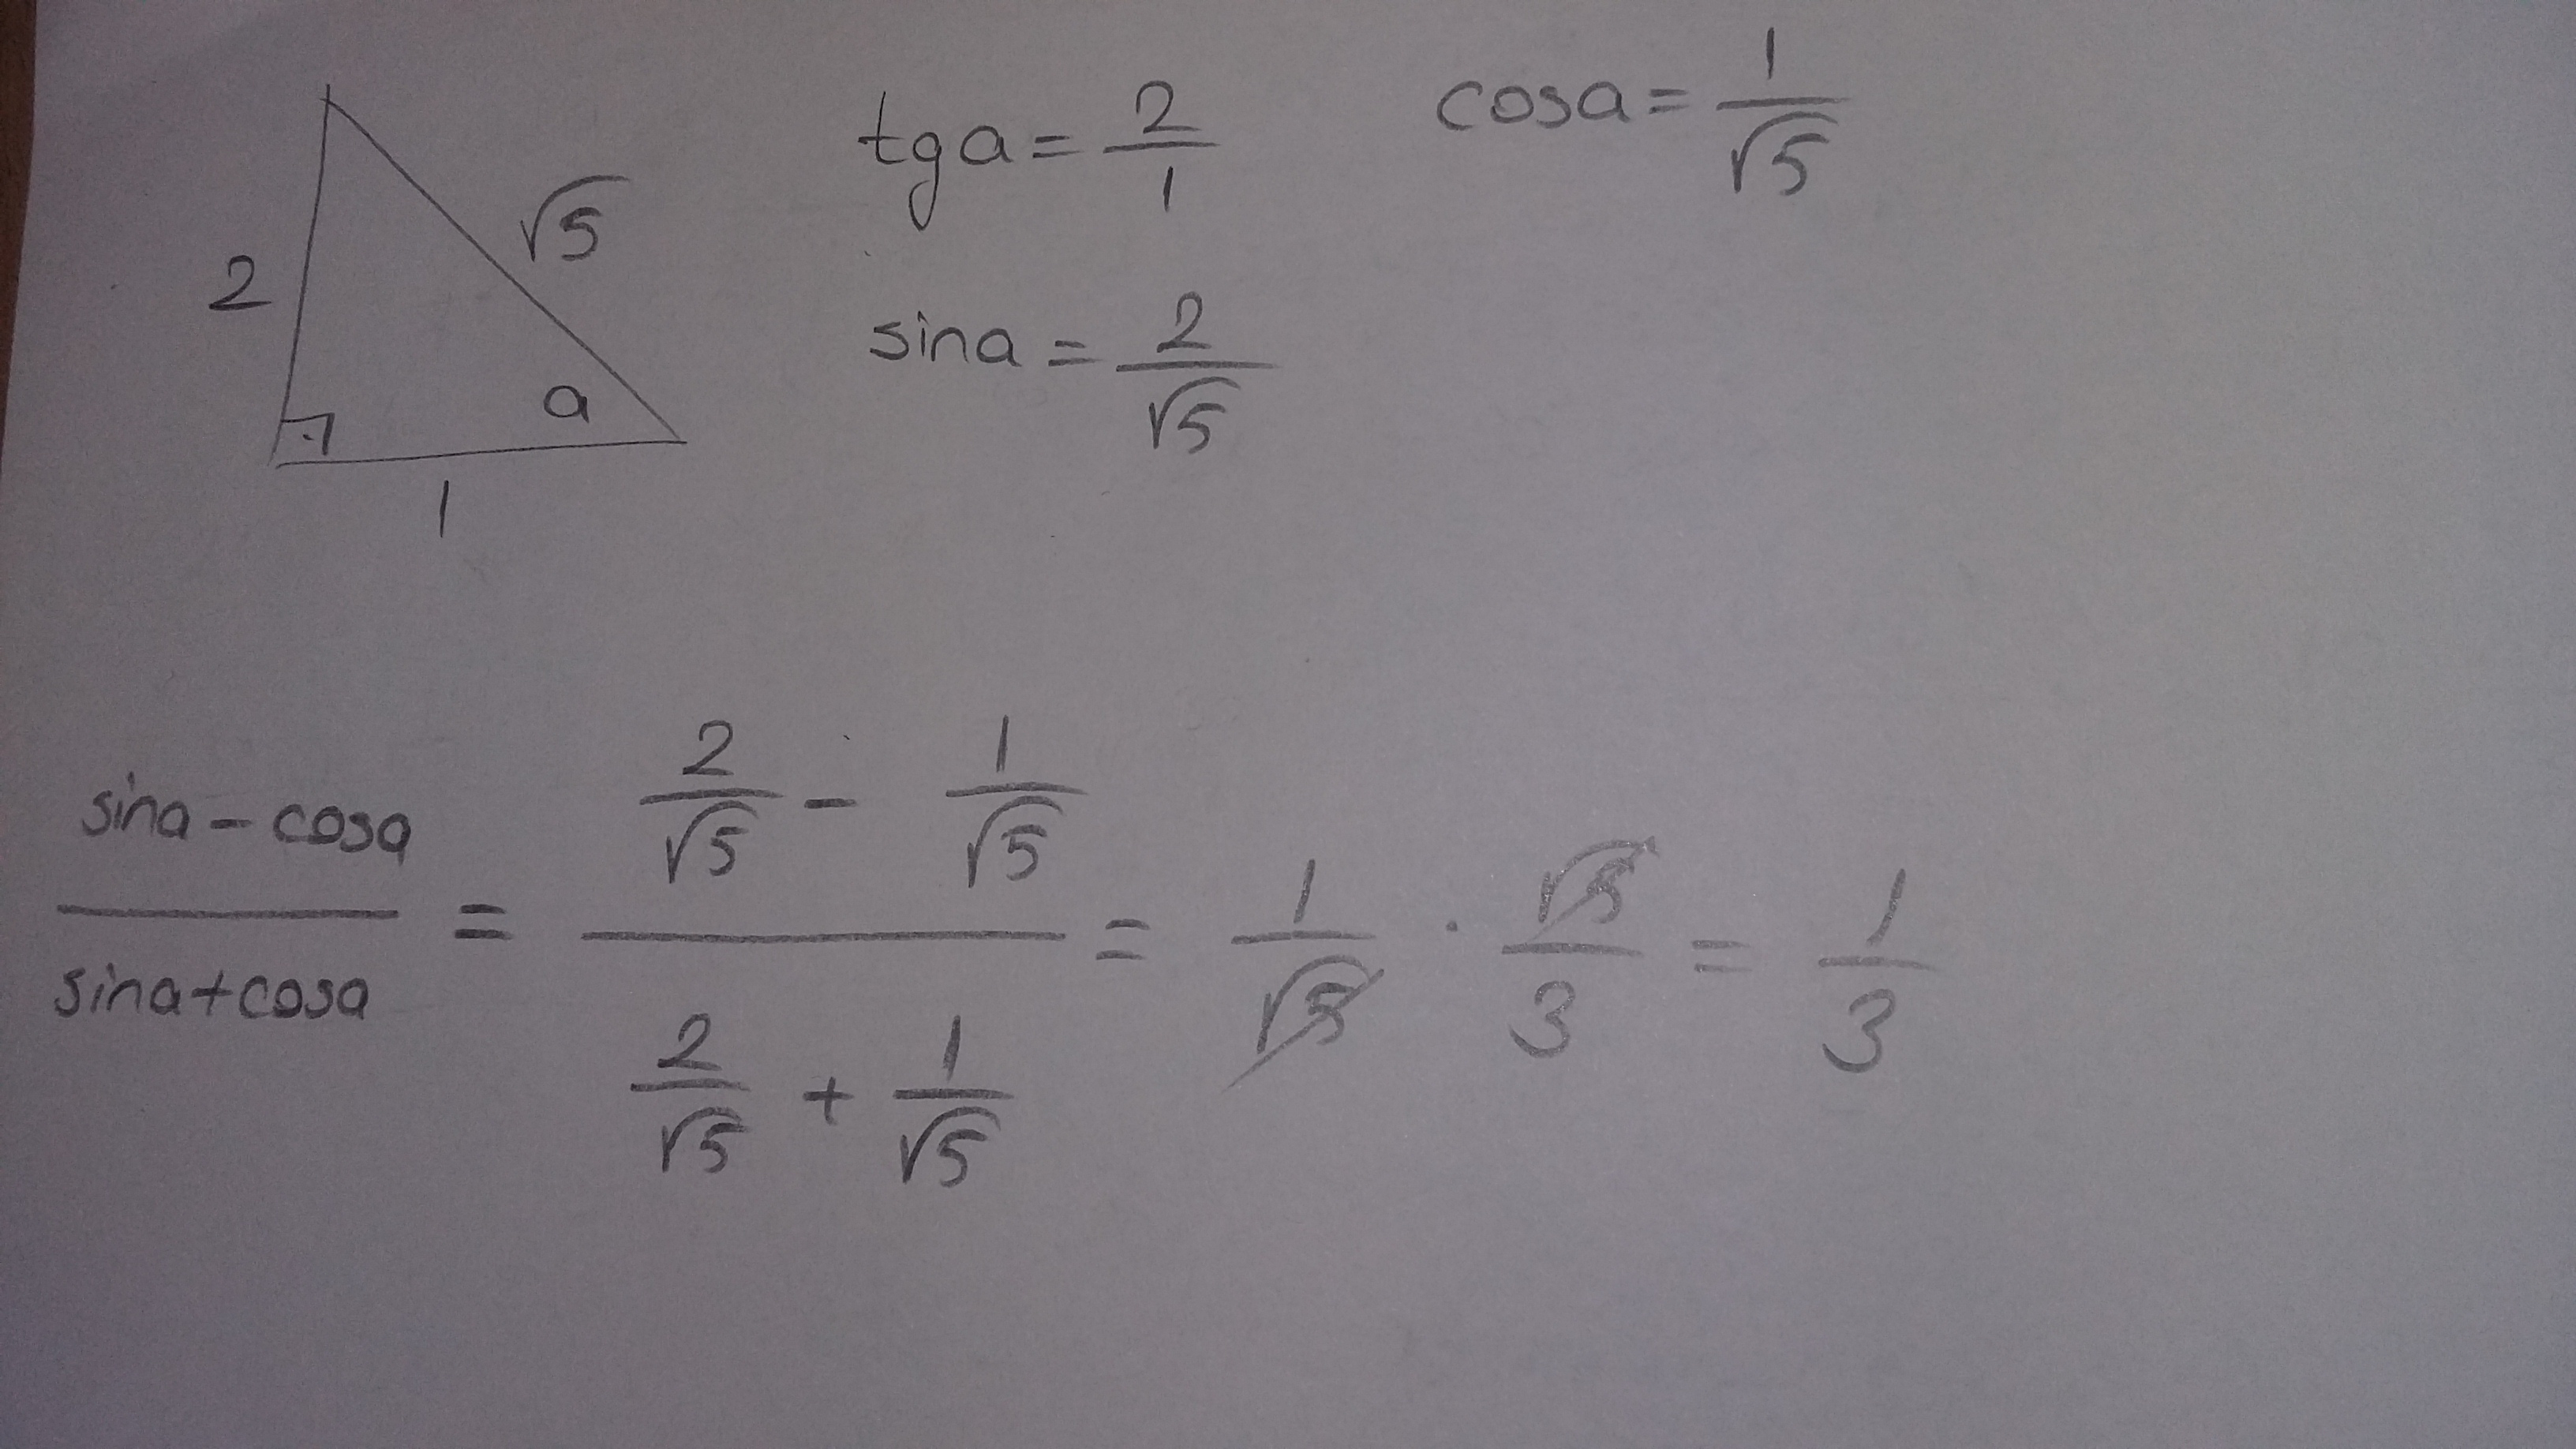 2
√5
a
1
tga = 2/1
cosa = 1/√5
sina = 2/√5
(sina - cosa)/(sina + cosa) = (2/√5 - 1/√5)/(2/√5 + 1/√5) = 1/√5 · √5/3 = 1/3